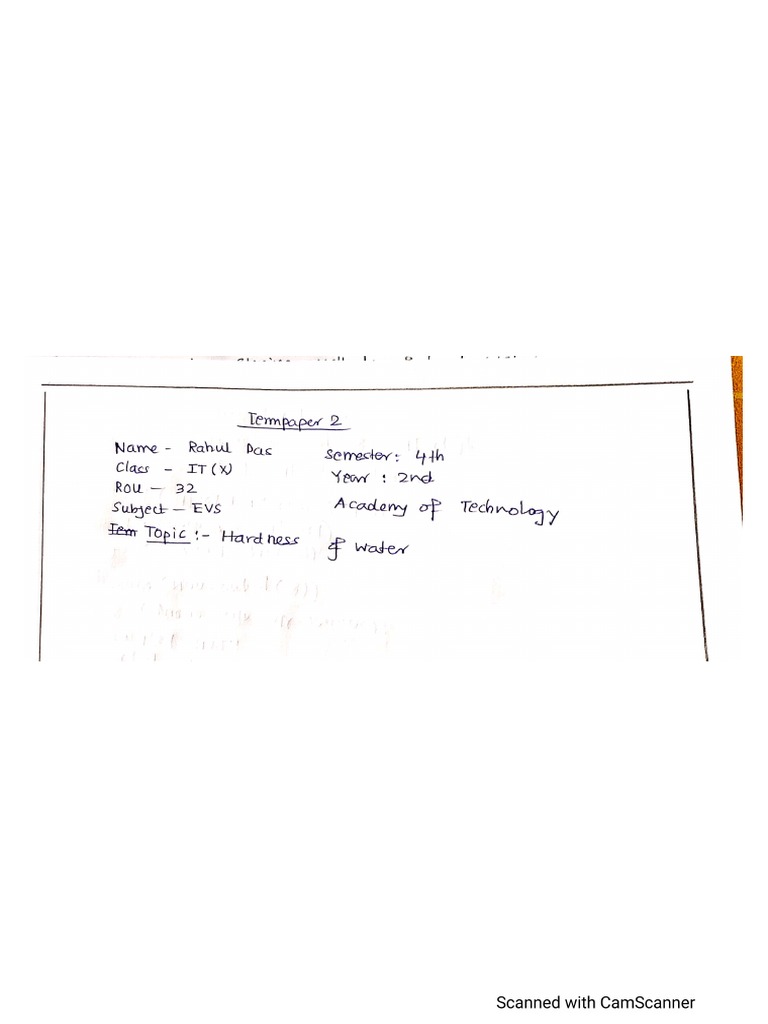 Termpaper 2
Name - Rahul Das
Semester: 4th
Class - IT (X)
Year : 2nd
Roll - 32
Subject - EVS
Academy of Technology
Tem Topic :- Hardness of water
Scanned with CamScanner